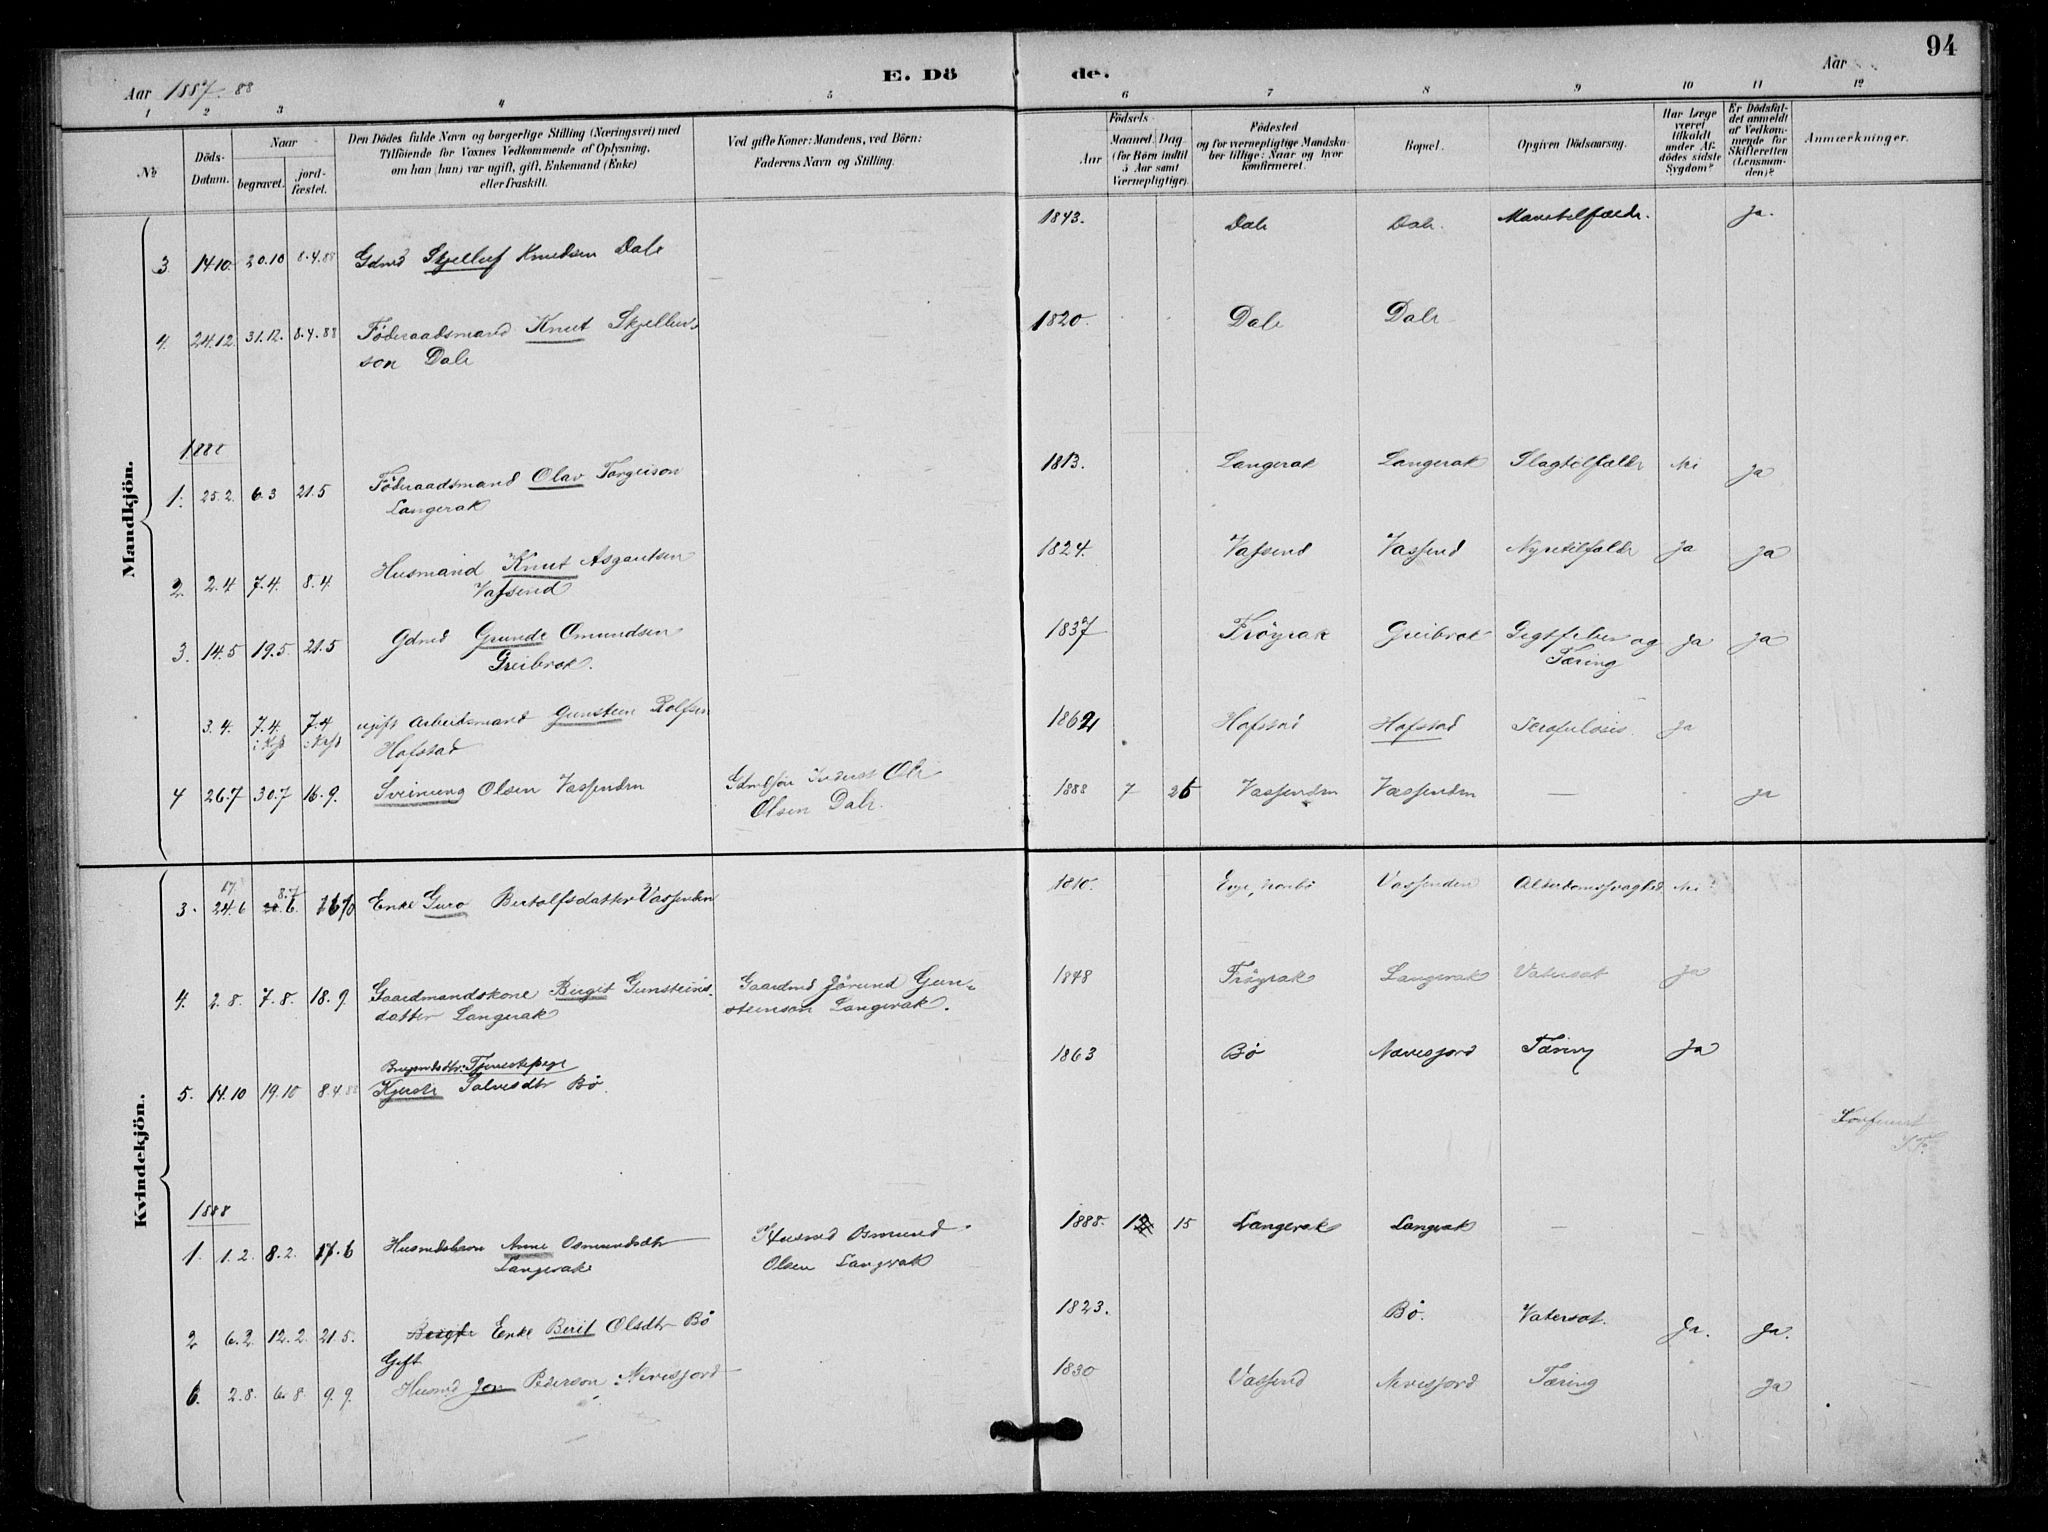 94
Aar 1887-88
E. Dö
de.
Aar
1 2 3 4 5 6 7 8 9 10 11 12
No
Döds-Datum.
Naar
begravet.
jord-fæstet.
Den Dödes fulde Navn og borgerlige Stilling (Næringsvei) med
Tilföiende for Voxnes Vedkommende af Oplysning,
om han (hun) var ugift, gift, Enkemand (Enke)
eller fraskilt.
Ved gifte Koner: Mandens, ved Börn:
Faderens Navn og Stilling.
Födsels-
Aar
Maaned Dag
(for Börn indtil
5 Aar samt
Værnepligtige).
Födested
og for værnepligtige Mandska-
ber tillige: Naar og hvor
konfirmeret.
Bopæl.
Opgiven Dödsaarsag.
Har Læge
været
tilkaldt
under Af-
dödes sidste
Sygdom?
Er Dödsfal-
det anmeldt
af Vedkom-
mende for
Skifteretten
(Lensman-
den)?
Anmærkninger.
Mandkjön.
3. 14.10. 20.10 8.4.88 Gdmd Skjelluf Knudsen Dale 1843. Dale Dale. Mavetilfælde. Ja.
4. 24.12 31.12. 8.4.88 Föderaadsmand Knut Skjellufs 1820. Dale Dale
son Dale
1888
1. 25.2. 6.3 21.5 Föderaadsmand Olav Torgeison 1813. Langerak Langerak Slagtilfælde Nei Ja
Langerak
2. 2.4 7.4. 8.4. Husmand Knut Asgautsen 1824. Vassend Vassend Nyretilfælde Ja Ja
Vassend
3. 14.5 19.5. 21.5 Gdmd Grunde Omundsen 1837 Fröyrak Greibrok Gigtfeber og Ja Ja
Greibrok. Tæring
3.4. 7.4. 7.4 ugift Arbeidsmand Gunsteen Rolfsen 1862 Hofstad Hofstad Scrofulosis. Ja
Hofstad
4 26.7 30.7 16.9. Sveinung Olsen Vassenden Ole 1888 7 26 Vassenden Vassenden — Ja
Olsen Dale.
Kvindekjön.
17
8.7
3. 24.6 20.6. Enke Guro Bertolfsdatter Vassenden 1810. Vassenden Alderdomssvaghed Nei
4. 2.8. 7.8. 18.9. Gaardmandskone Birgit Gunsteins- Gaardmd Jörund Gun- 1848 Fröyrak Langerak Vatersot Ja
datter Langerak steinson Langerak.
Tjenestepige
5. 14.10 19.10 8.4.88 Kjersti Salvesdtr Bö 1863 Bö Nævesfjord Tæring Ja
1888
1. 1.2. 8.2. 17.6 Husmdsbarn Anne Osmundsdtr Husmd Osmund 1888. 15 Langerak Langerak —
Langerak Olsen Langerak
2 6.2 12.2. 21.5. Enke Berit Olsdtr Bö 1823. Bö. Vatersot. Ja. Ja.
Gift
6. 2.8. 6.8. 9.9. Husmd Jon Pederson Nevesfjord 1830 Vassend Nevesfjord Tæring Ja